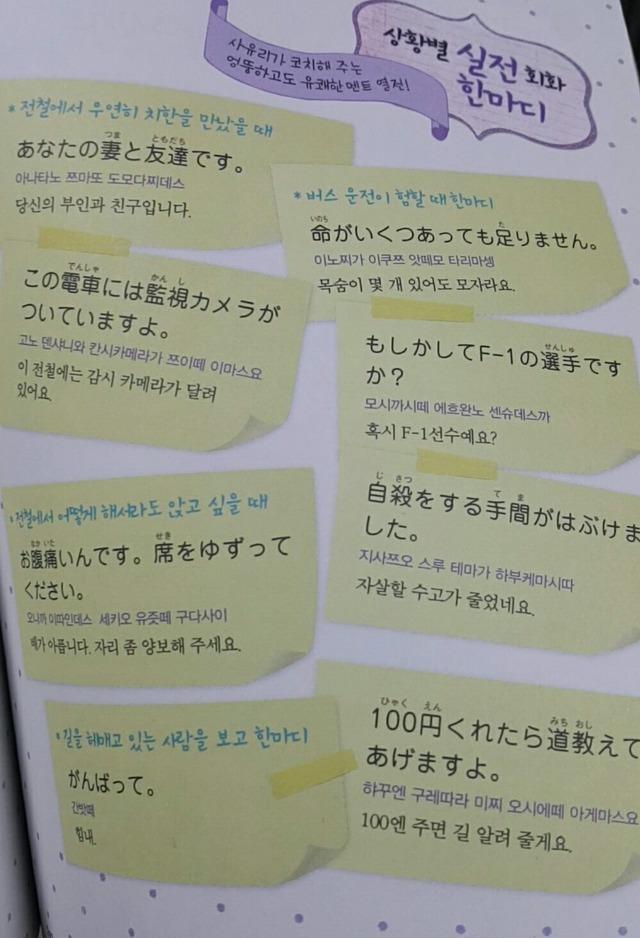 상황별 실전 회화
한마디
사유리가 코치해 주는
엉뚱하고도 유쾌한 멘트 열전!
* 전철에서 우연히 치한을 만났을 때
つま ともだち
あなたの妻と友達です。
아나타노 쯔마또 도모다찌데스
당신의 부인과 친구입니다.
でんしゃ かんし
この電車には監視カメラが
ついていますよ。
고노 덴샤니와 칸시카메라가 쯔이떼 이마스요
이 전철에는 감시 카메라가 달려
있어요.
* 버스 운전이 험할 때 한마디
いのち た
命がいくつあっても足りません。
이노찌가 이쿠쯔 앗떼모 타리마셍
목숨이 몇 개 있어도 모자라요.
せんしゅ
もしかしてF-1の選手です
か?
모시까시떼 에흐완노 센슈데스까
혹시 F-1선수예요?
じさつ てま
自殺をする手間がはぶけま
した。
지사쯔오 스루 테마가 하부케마시따
자살할 수고가 줄었네요.
* 전철에서 어떻게 해서라도 앉고 싶을 때
なかいた せき
お腹痛いんです。席をゆずって
ください。
오나까 이따인데스 세키오 유즛떼 구다사이
배가 아픕니다. 자리 좀 양보해 주세요.
* 길을 헤매고 있는 사람을 보고 한마디
がんばって。
간밧떼
힘내.
ひゃく えん みち おし
100円くれたら道教えて
あげますよ。
햐꾸엔 구레따라 미찌 오시에떼 아게마스요
100엔 주면 길 알려 줄게요.